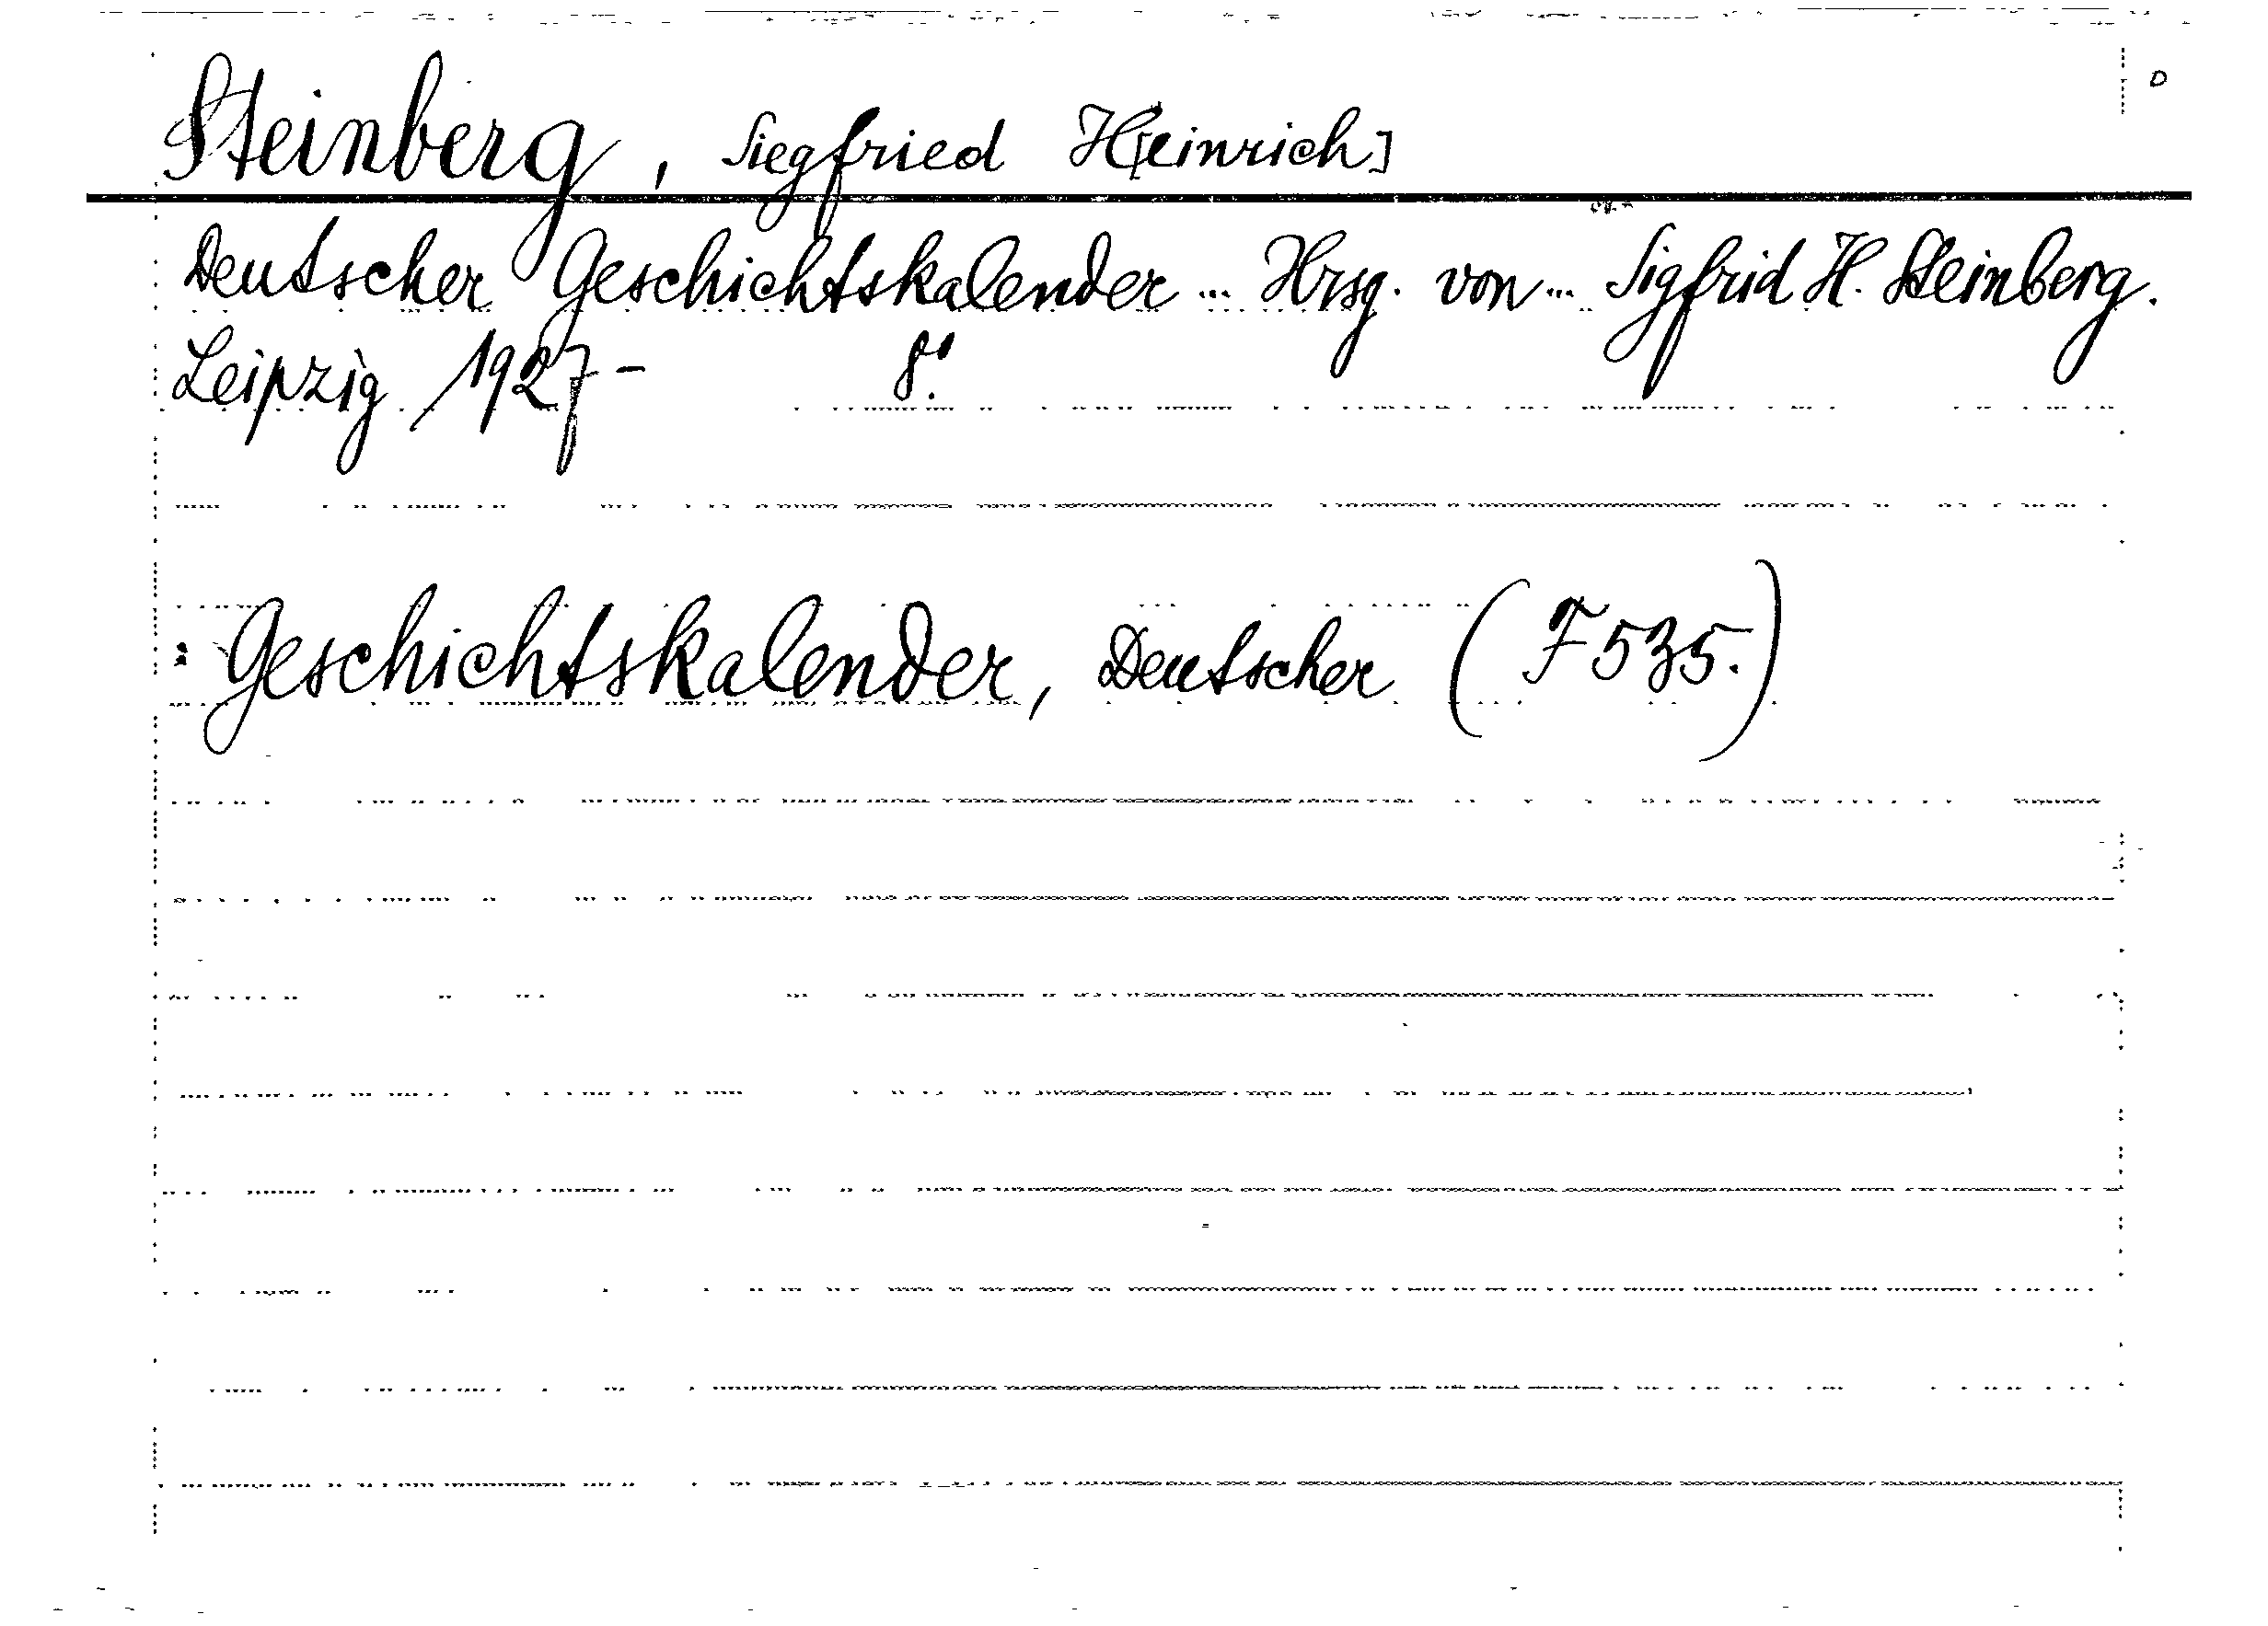 Steinberg, Siegfried H[einrich]
Deutscher Geschichtskalender ... Hrsg. von ... Sigfrid H. Steinberg.
Leipzig 1927- 8°.
Geschichtskalender, Deutscher (F 535.)